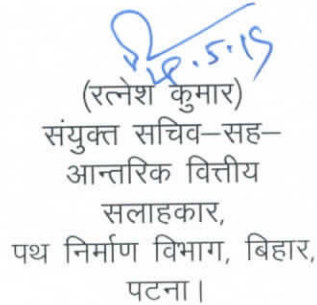 (रत्नेश कुमार)
संयुक्त सचिव–सह–
आन्तरिक वित्तीय
सलाहकार,
पथ निर्माण विभाग, बिहार,
पटना।